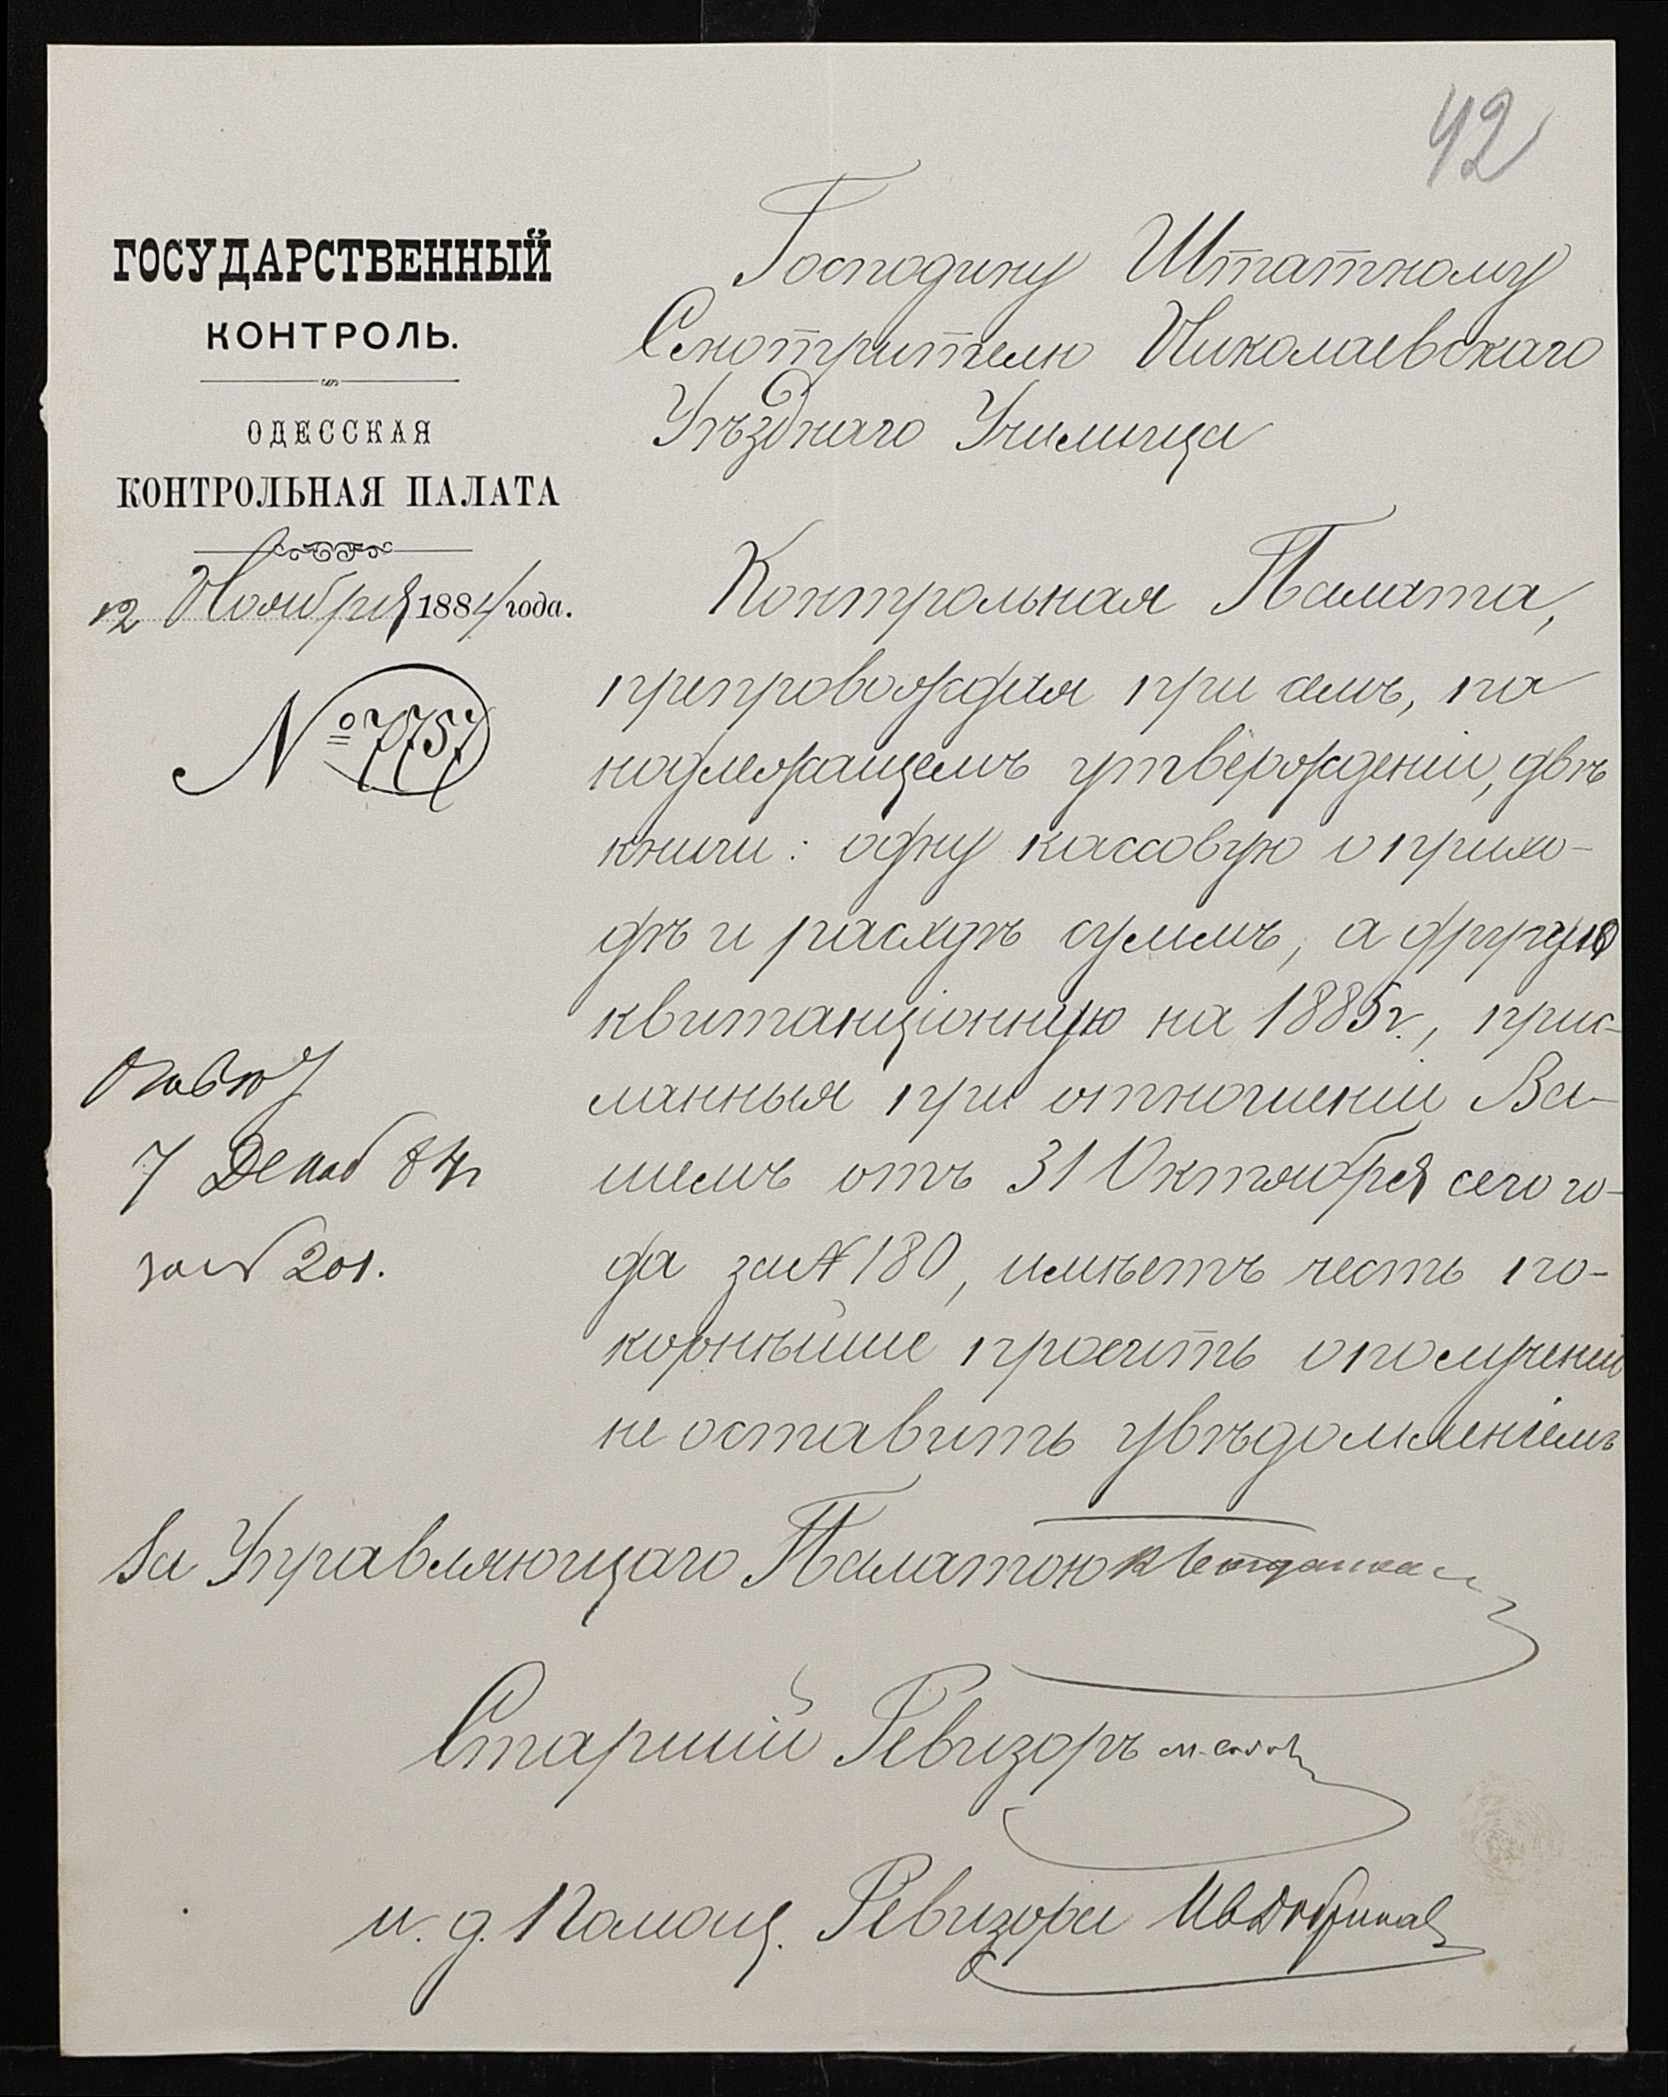 42
ГОСУДАРСТВЕННЫЙ
КОНТРОЛЬ.
ОДЕССКАЯ
КОНТРОЛЬНАЯ ПАЛАТА
12 Ноября 1884 года.
№ 7757
Господину Штатному
Смотрителю Николаевскаго
Уѣзднаго Училища
Контрольная Палата,
препровождая при семъ, по
надлежащемъ утвержденіи, двѣ
книги: одну кассовую о прихо-
дѣ и расходѣ суммъ, а другую
квитанціонную на 1885 г., прис-
ланныя при отношеніи Ва-
шемъ отъ 31 Октября сего го-
да за № 180, имѣетъ честь по-
корнѣйше просить о полученіи
не оставить увѣдомленіемъ
7 Декаб 84 г
за № 201.
За Управляющаго Палатою
Старшій Ревизоръ
и. д. Помощ. Ревизора